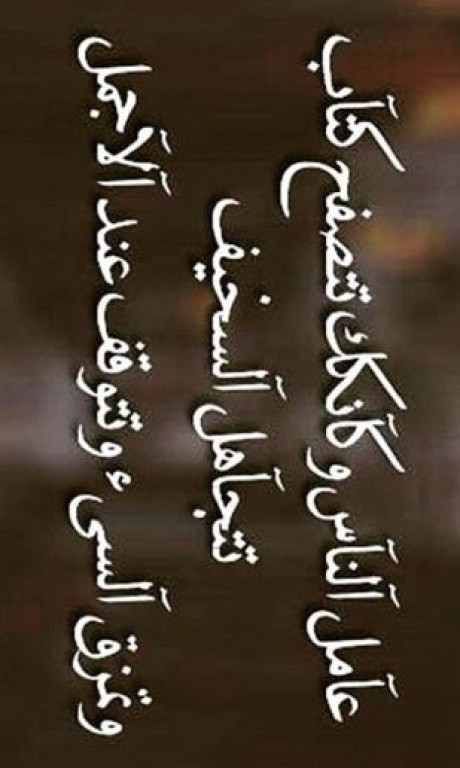 عآمل آلنآس وكآنكك تتصفح كتآب
تتجآهل آلسخيف
وتمزق آلسيء وتتوقف عند آلآجمل